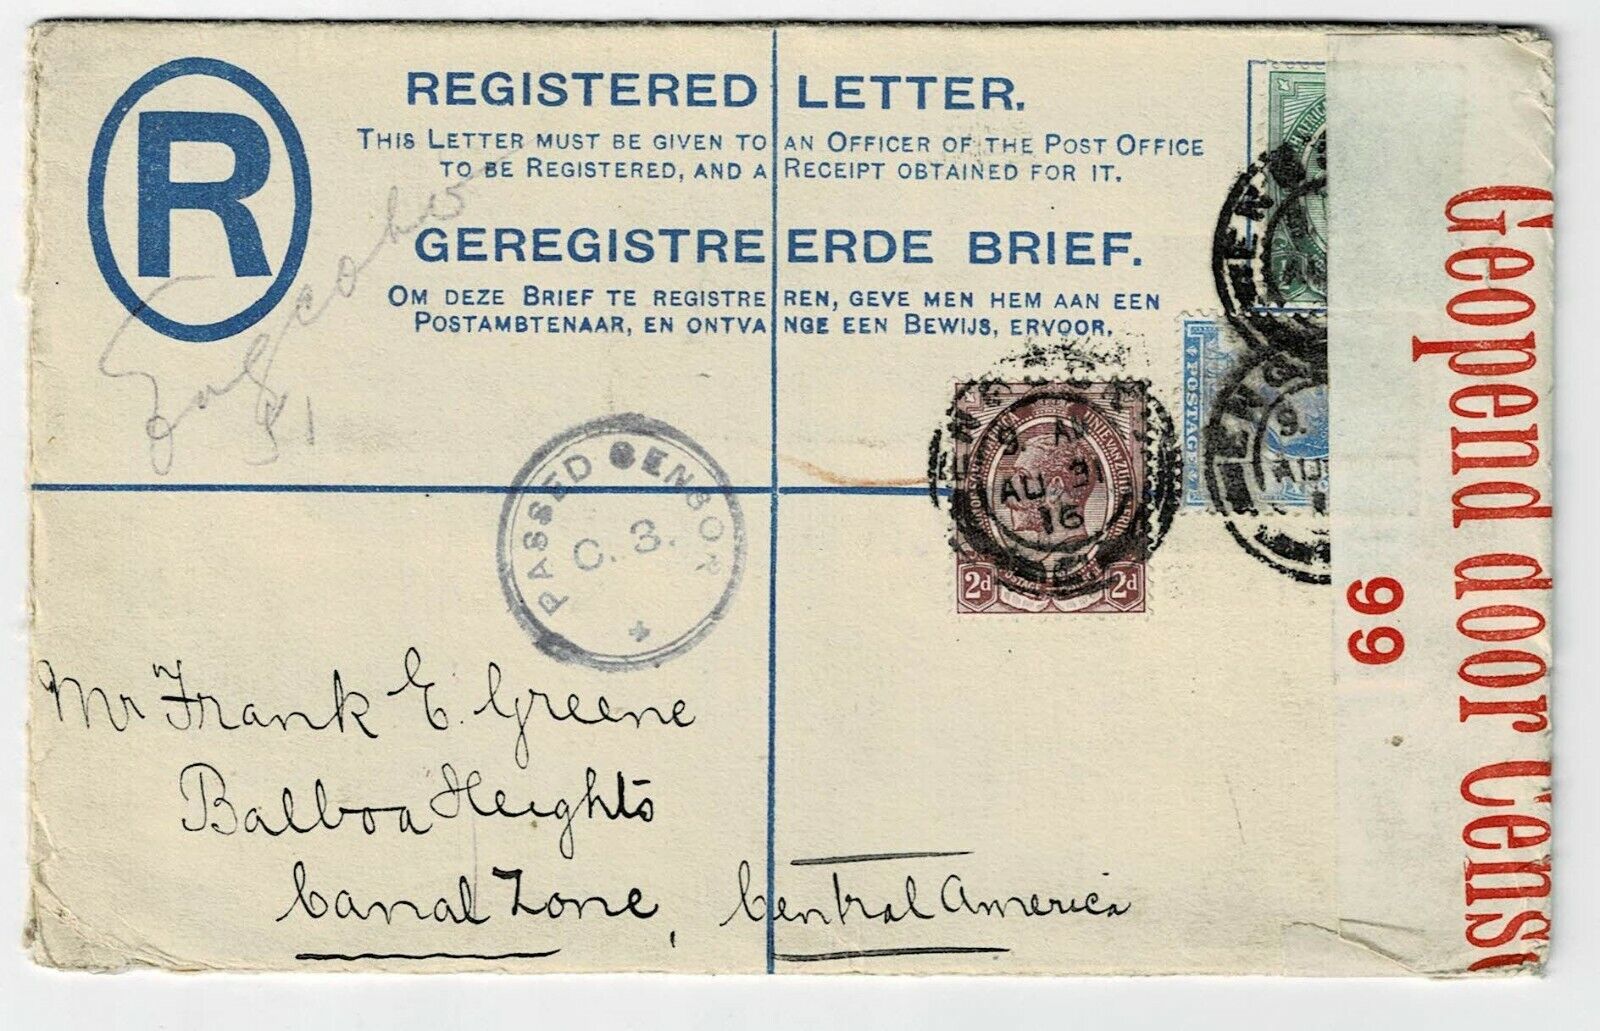 R
REGISTERED LETTER.
THIS LETTER MUST BE GIVEN TO AN OFFICER OF THE POST OFFICE
TO BE REGISTERED, AND A RECEIPT OBTAINED FOR IT.
GEREGISTREERDE BRIEF.
OM DEZE BRIEF TE REGISTREREN, GEVE MEN HEM AAN EEN
POSTAMBTENAAR, EN ONTVANGE EEN BEWIJS, ERVOOR.
PASSED CENSOR
C. 3.
9. AM
AU 31
16
2d 2d
POSTAGE
POSTAGE
9.
AU
Mr Frank E. Greene
Balboa Heights
Canal Zone, Central America
99
Geopend door Cens